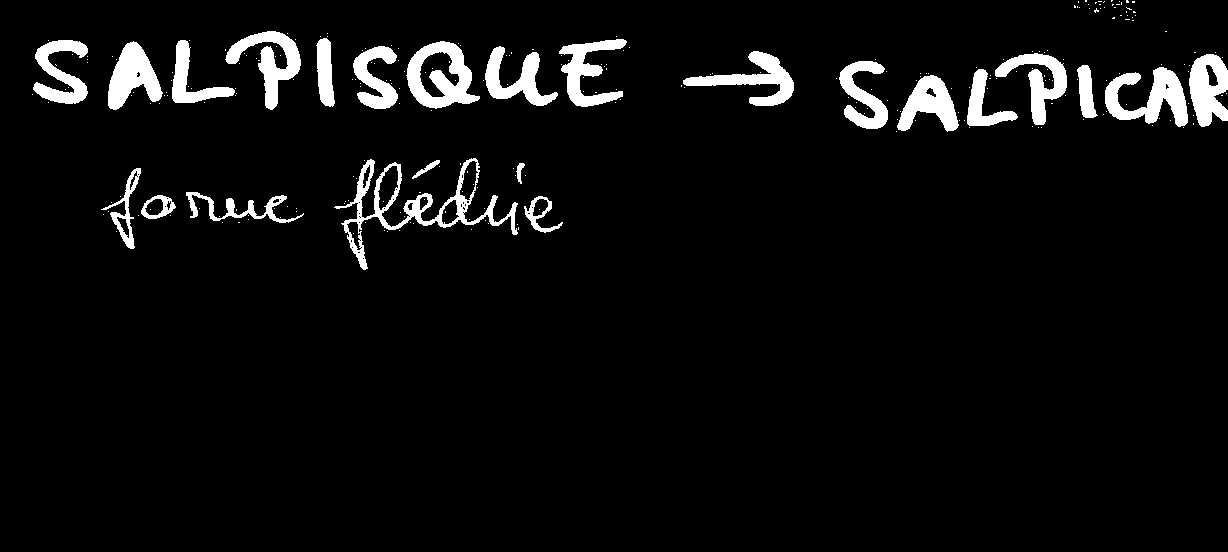 SALPISQUE → SALPICAR
forme fléchie